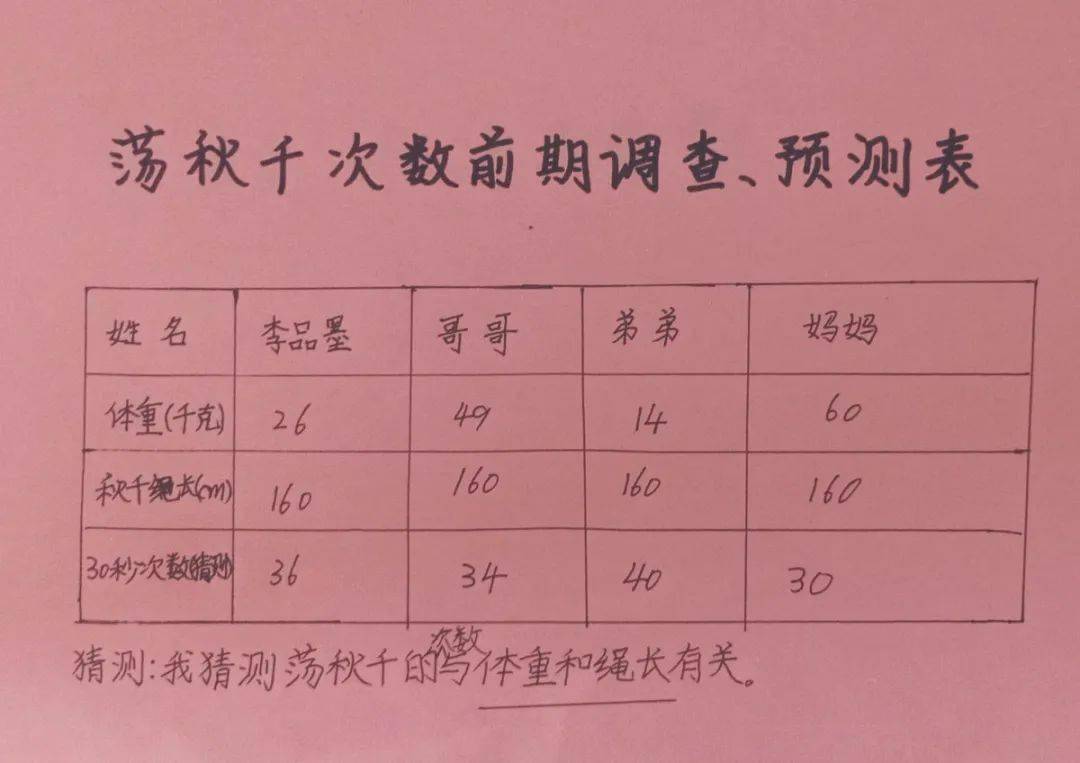 荡秋千次数前期调查、预测表
姓名 李品墨 哥哥 弟弟 妈妈
体重(千克) 26 49 14 60
秋千绳长(cm) 160 160 160 160
30秒次数(猜测) 36 34 40 30
猜测:我猜测荡秋千的次数与体重和绳长有关。